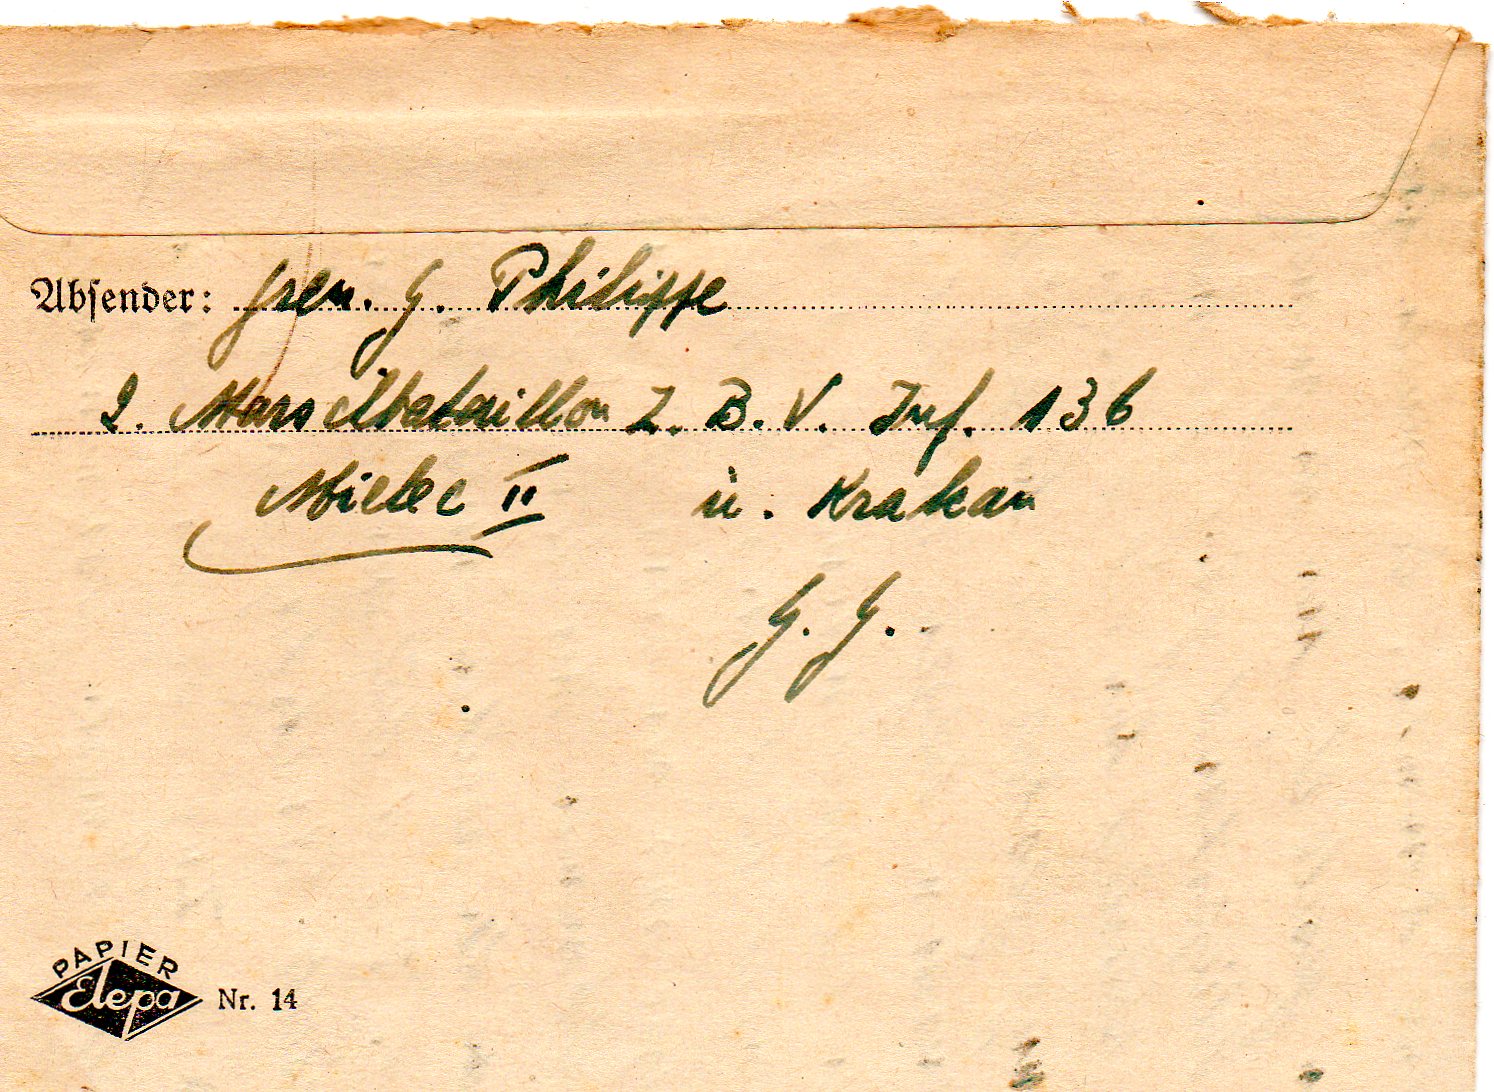 Absender: Gren. G. Philippe
2. Marschbataillon Z. B. V. Inf. 136
Mielec II ü. Krakau
G. G.
PAPIER
Elepa Nr. 14